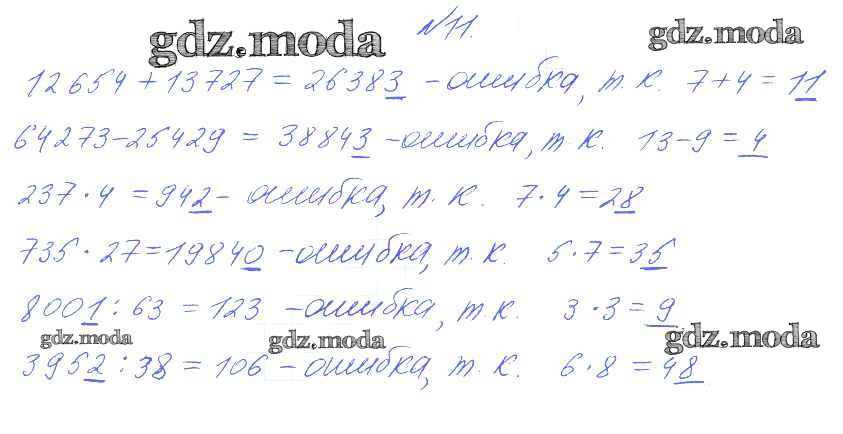 №11.
gdz.moda gdz.moda
12654 + 13727 = 26383 - ошибка, т.к. 7+4 = 11
64273 - 25429 = 38843 - ошибка, т.к. 13 - 9 = 4
237 · 4 = 942 - ошибка, т.к. 7 · 4 = 28
735 · 27 = 19840 - ошибка, т.к. 5 · 7 = 35
8001 : 63 = 123 - ошибка, т.к. 3 · 3 = 9
gdz.moda gdz.moda gdz.moda
3952 : 38 = 106 - ошибка, т.к. 6 · 8 = 48